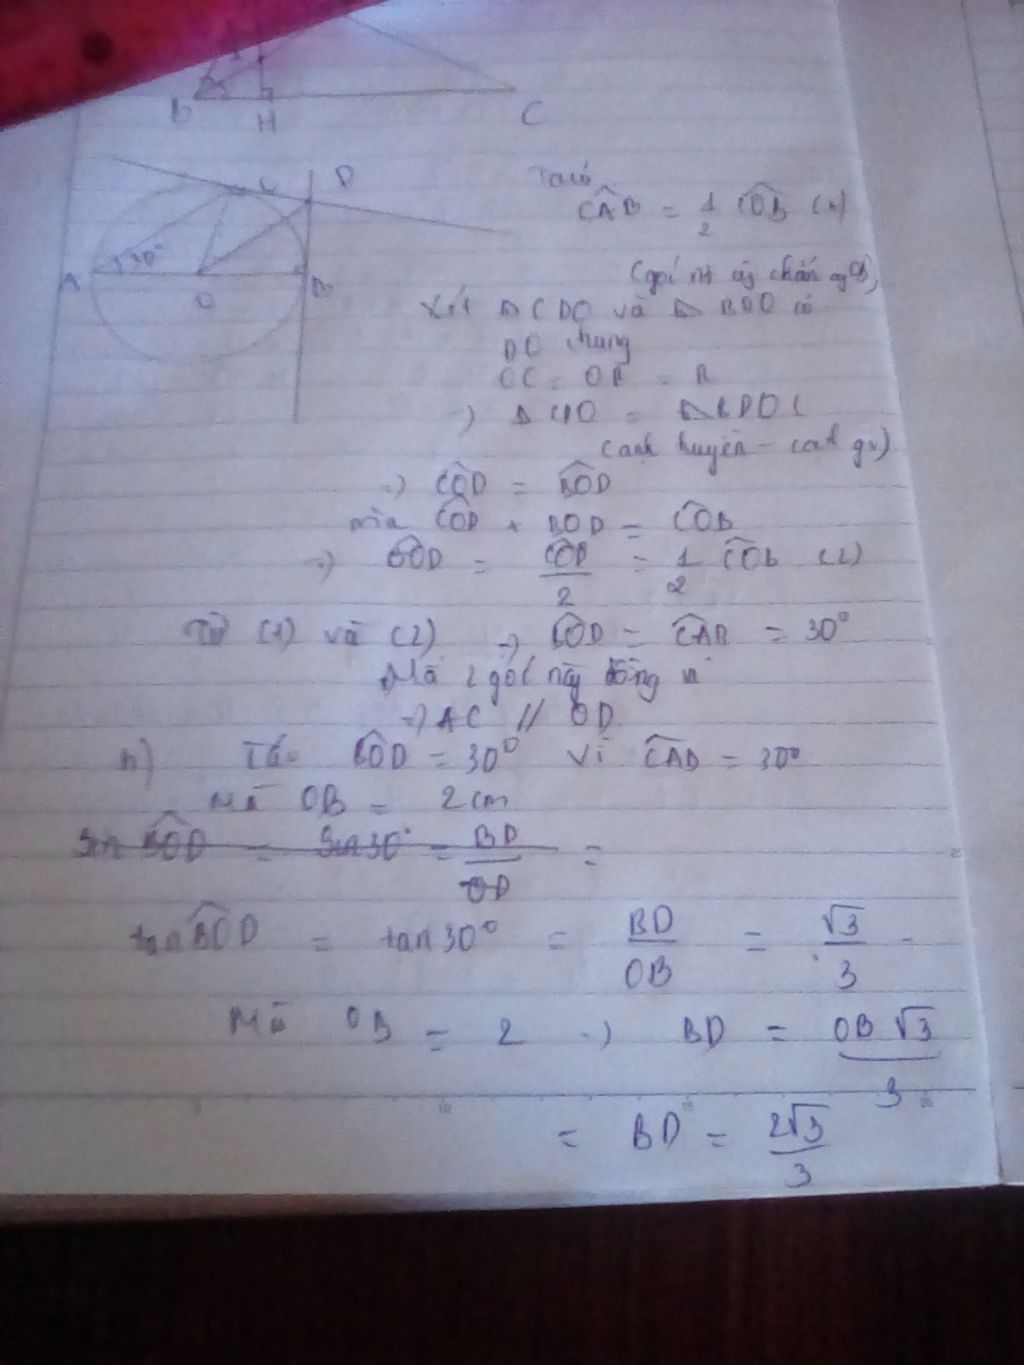 B H C
C D
A 30° O B
Ta có
CAB = 1/2 COB (1)
(góc nt cùng chắn
Xét Δ CDO và Δ BDO có
DO chung
OC = OB = R
=) Δ CDO = Δ
(cạnh huyền - cạnh gv)
=) COD = BOD
mà COD + BOD = COB
=) BOD = COB/2 = 1/2 COB (2)
Từ (1) và (2) =) BOD = CAB = 30°
Mà 2 góc này đồng vị
=) AC // OD
Tacó BOD = 30° Vì CAB = 30°
Mà OB = 2 cm
Sin BOD = Sin 30° = BD/OD =
tan BOD = tan 30° = BD/OB = √3/3
Mà OB = 2 =) BD = OB √3/3
= BD = 2√3/3